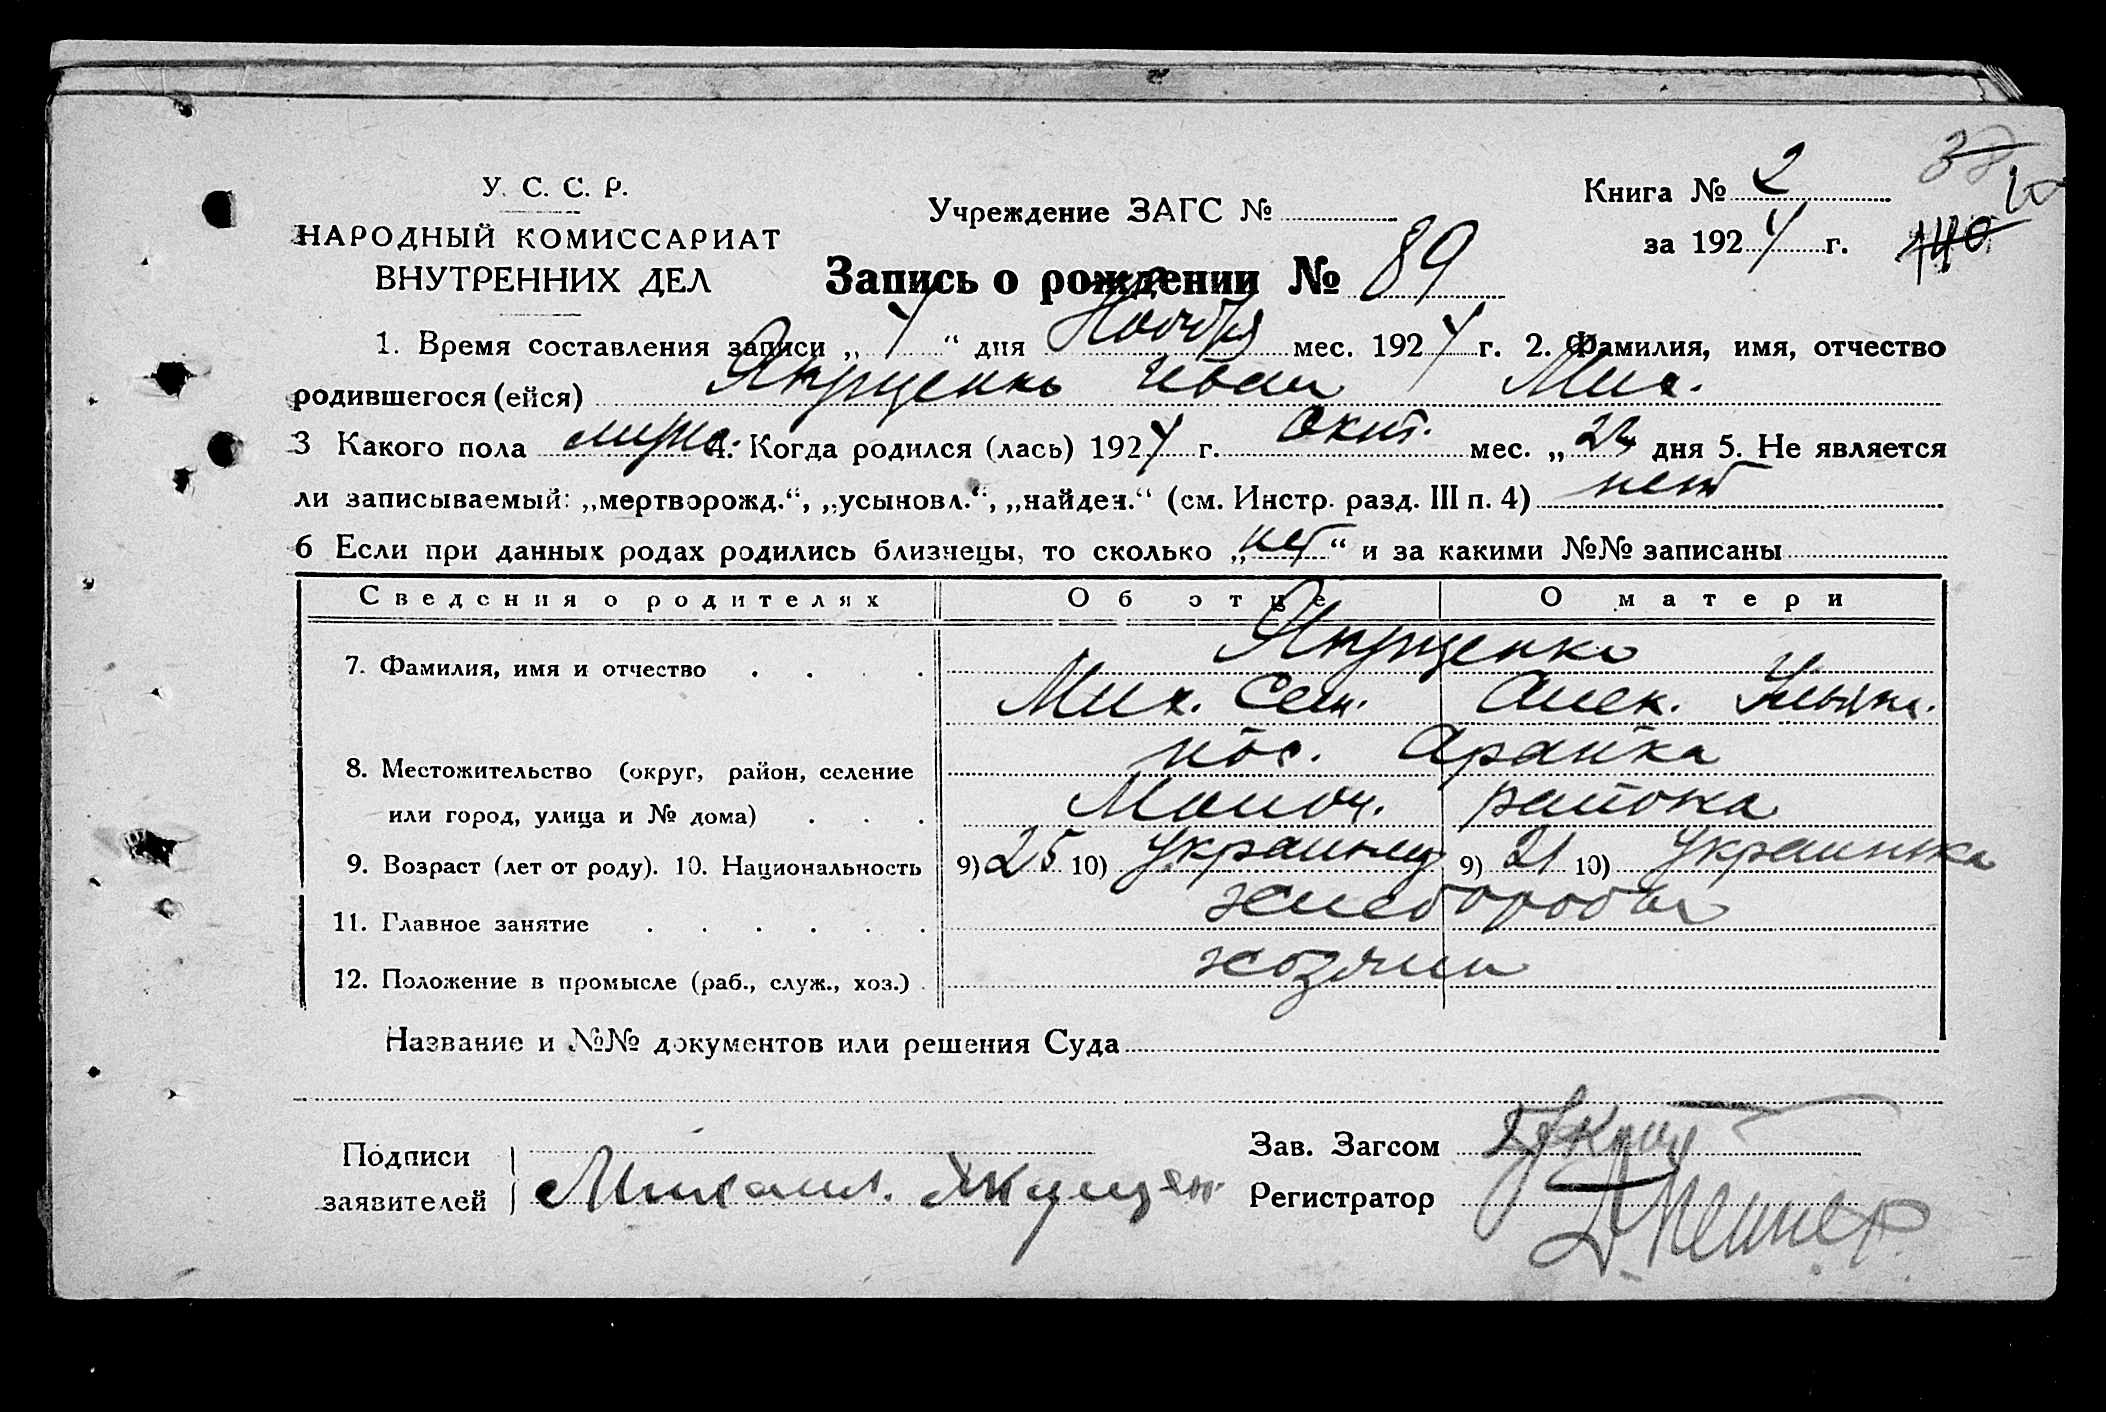 У. С. С. Р.
НАРОДНЫЙ КОМИССАРИАТ
ВНУТРЕННИХ ДЕЛ
Учреждение ЗАГС №
Книга № 2
за 1924 г.
38
140
Запись о рождении № 89
1. Время составления записи „4“ дня Ноября мес. 1924 г. 2. Фамилия, имя, отчество
родившегося (ейся) Якущенко Иван Мих.
3 Какого пола муж. 4. Когда родился (лась) 1924 г. Окт. мес. „24 дня 5. Не является
ли записываемый: „мертворожд.“, „усыновл.“, „найден.“ (см. Инстр. разд. III п. 4) нет
6 Если при данных родах родились близнецы, то сколько „нет“ и за какими №№ записаны
Сведения о родителях Об отце О матери
7. Фамилия, имя и отчество Якущенко
Мих. Сем. Алек. Ульян.
8. Местожительство (округ, район, селение пос. Арайка
или город, улица и № дома) Молоч. района
9. Возраст (лет от роду). 10. Национальность 9) 25 10) Украинец 9) 21 10) Украинка
11. Главное занятие хлебороб
12. Положение в промысле (раб., служ., хоз.) хозяин
Название и №№ документов или решения Суда
Подписи
заявителей Михаил Якущен
Зав. Загсом
Регистратор